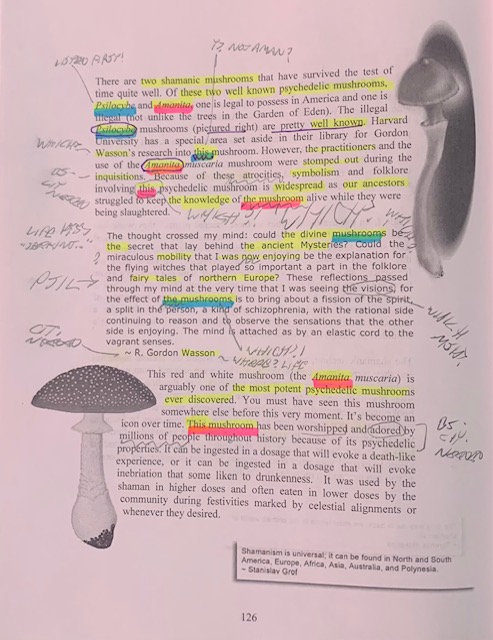 Y? NOT AMAN?
There are two shamanic mushrooms that have survived the test of
time quite well. Of these two well known psychedelic mushrooms,
Psilocybe and Amanita, one is legal to possess in America and one is
illegal (not unlike the trees in the Garden of Eden). The illegal
Psilocybe mushrooms (pictured right) are pretty well known. Harvard
University has a special area set aside in their library for Gordon
Wasson's research into this mushroom. However, the practitioners and the
use of the Amanita muscaria mushroom were stomped out during the
inquisitions. Because of these atrocities, symbolism and folklore
involving this psychedelic mushroom is widespread as our ancestors
struggled to keep the knowledge of the mushroom alive while they were
being slaughtered.
The thought crossed my mind: could the divine mushrooms be
the secret that lay behind the ancient Mysteries? Could the
miraculous mobility that I was now enjoying be the explanation for
the flying witches that played so important a part in the folklore
and fairy tales of northern Europe? These reflections passed
through my mind at the very time that I was seeing the visions, for
the effect of the mushrooms is to bring about a fission of the spirit,
a split in the person, a kind of schizophrenia, with the rational side
continuing to reason and to observe the sensations that the other
side is enjoying. The mind is attached as by an elastic cord to the
vagrant senses.
~ R. Gordon Wasson
This red and white mushroom (the Amanita muscaria) is
arguably one of the most potent psychedelic mushrooms
ever discovered. You must have seen this mushroom
somewhere else before this very moment. It's become an
icon over time. This mushroom has been worshipped and adored by
millions of people throughout history because of its psychedelic
properties. It can be ingested in a dosage that will evoke a death-like
experience, or it can be ingested in a dosage that will evoke
inebriation that some liken to drunkenness. It was used by the
shaman in higher doses and often eaten in lower doses by the
community during festivities marked by celestial alignments or
whenever they desired.
BS-
CIT.
NEEDED
Shamanism is universal; it can be found in North and South
America, Europe, Africa, Asia, Australia, and Polynesia.
~ Stanislav Grof
126